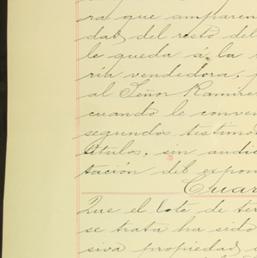 ra que amparen
dad del resto del
le queda á la
rih vendedora,
al Señor Ramire
cuando le conven
segundos testimo
títulos, sin audi
tación del expon
Cuar
Que el lote de ter
se trata ha sido
siva propiedad